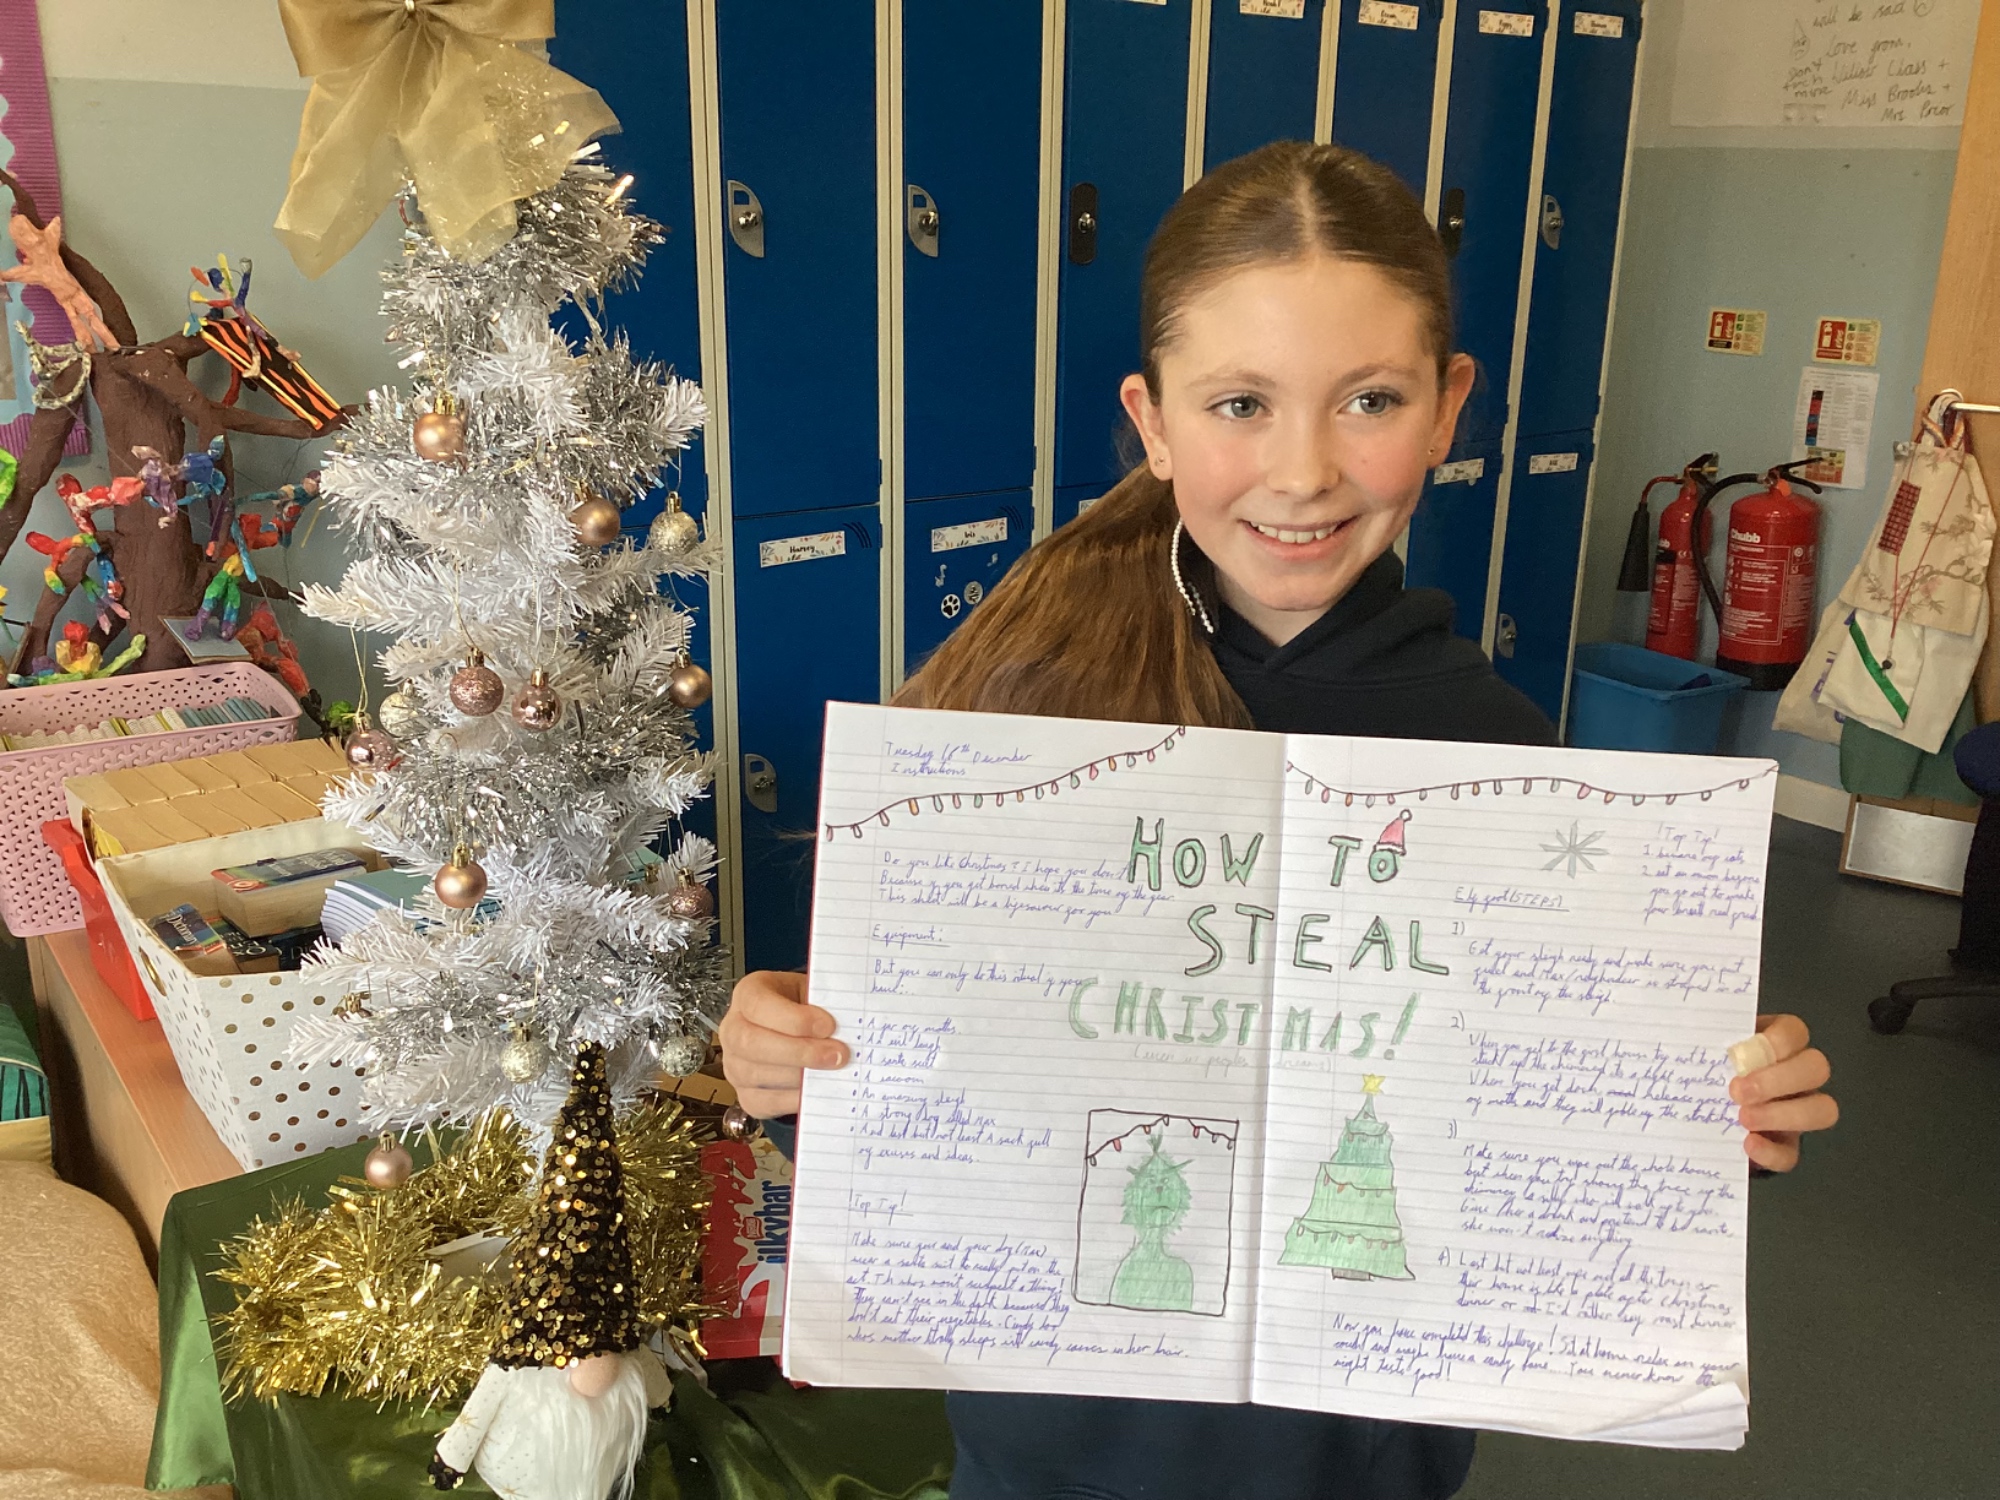 will be sad
Love from
Willow Class +
Miss Brooks +
Mrs Prior
Harvey
Iris
Chubb
Dictionary
Milkybar
Tuesday 16th December
Instructions
HOW TO
STEAL
CHRISTMAS!
Do you like Christmas? I hope you don't
Because if you get bored when its the time of the year
This sheet will be a lifesaver for you
Equipment:
But you can only do this ritual if you
have...
• A jar of moths
• An evil laugh
• A santa suit
• A vacuum
• An amazing sleigh
• A strong dog called max
• And last but not least A sack full
of excuses and ideas.
!Top Tip!
Make sure you and your dog (Max)
wear a santa suit to really put on the
act. The whos won't suspect a thing!
They can't see in the dark because they
don't eat their vegetables. Cindy lou
whos mother sleeps with candy canes in her hair.
!Top Tip!
1. beware of cats
2. set an alarm before
you go out to make
(STEPS)
1)
Get your sleigh ready and make sure you put
and Max/ is straped in at
the front of the sleigh.
2)
When you get to the first house try not to get
stuck up the chimney its a tight squeeze
When you get down release your jar
of moths and they will goble up the stockings
3)
Make sure you wipe out the whole house
but when you try shoving the tree up the
chimney a who will walk up to you.
Give her a drink and pretend to be santa,
she won't notice anything
4) Last but not least wipe out all the so
their house is like a plate after Christmas
dinner or I'd rather say roast dinner
Now you have completed this challenge! Sit at home relax on your
couch and maybe have a candy cane.... You never know
might taste good!